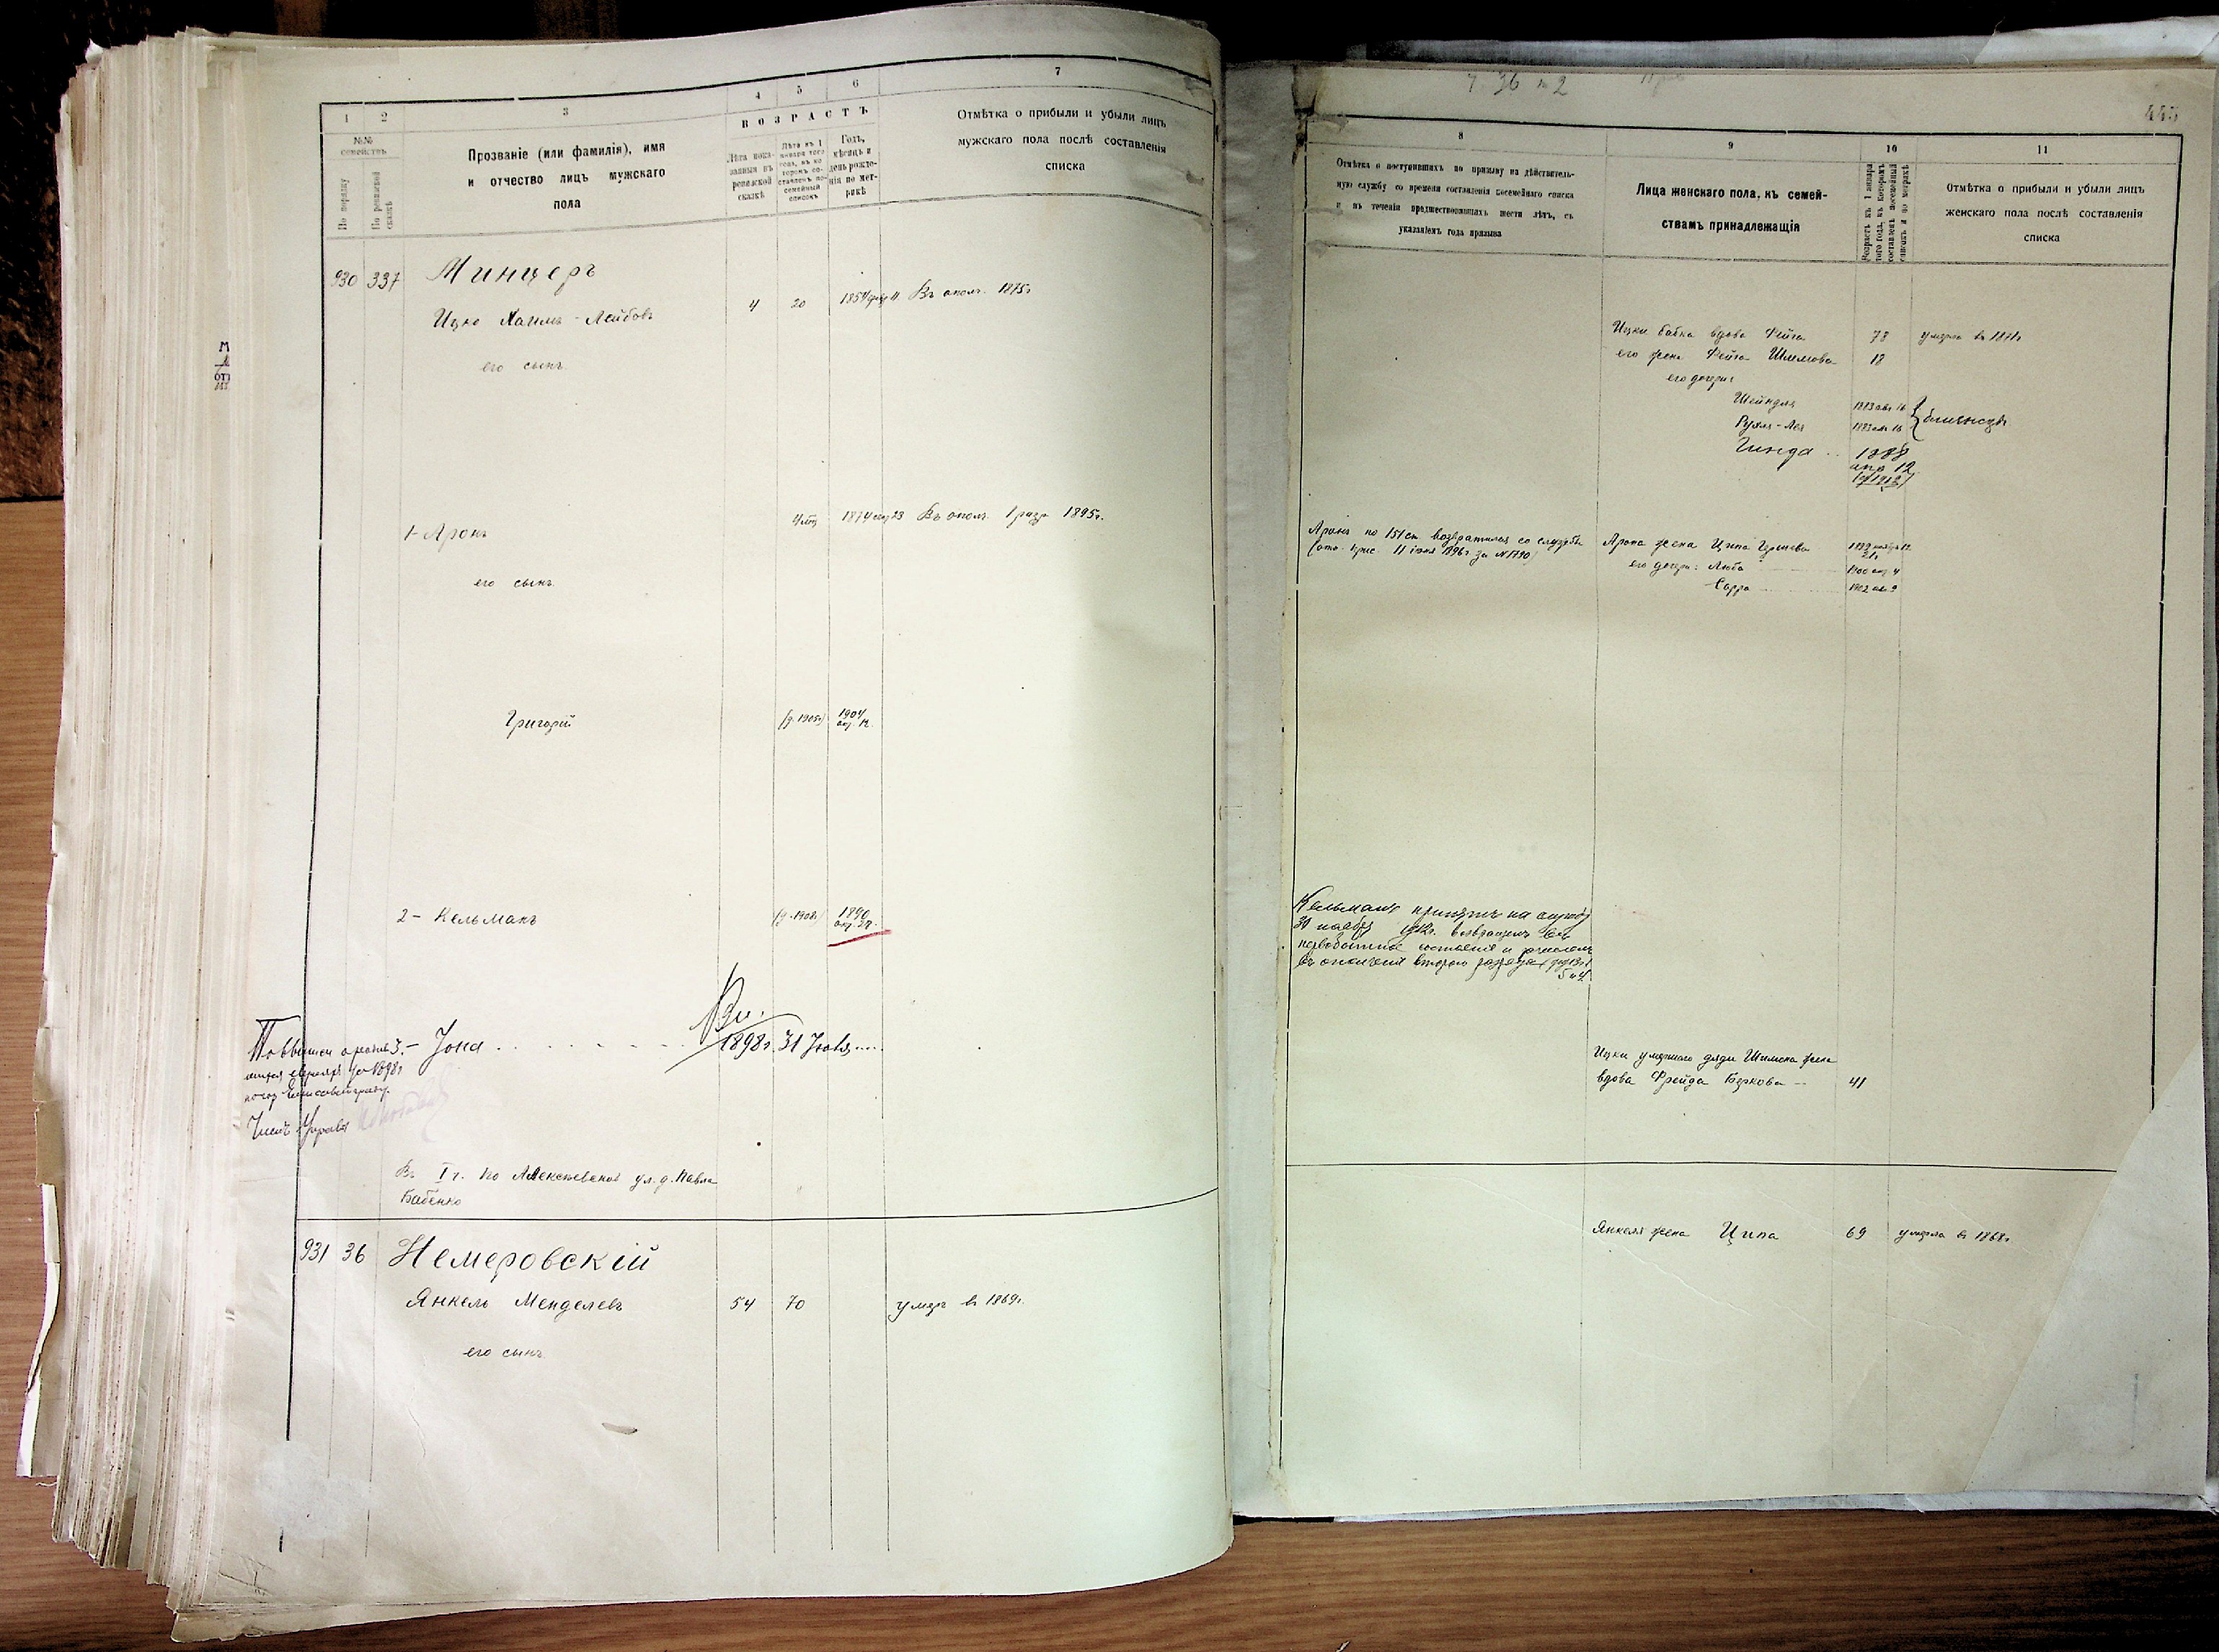 1
2
3
4
5
6
7
№№ семействъ
По порядку
По ревизской сказкѣ
Прозваніе (или фамилія), имя
и отчество лицъ мужскаго
пола
ВОЗРАСТЪ
Лѣта пока-
занныя въ
ревизской
сказкѣ
Лѣта къ 1
января того
года, въ ко-
торомъ со-
ставленъ по-
семейный
списокъ
Годъ,
мѣсяцъ и
день рожде-
нія по мет-
рикѣ
Отмѣтка о прибыли и убыли лицъ
мужскаго пола послѣ составленія
списка
930 337 Минцеръ
Ицко Хаимъ-Лейбовъ 4 20 1854 4 Въ ополч. 1875г
его сынъ
1- Аронъ 1874 23 Въ ополч. 1 разр 1895г.
его сынъ
Григорій (д. 1905г) 1904
12.
2- Кельманъ (д. 1908г) 1890
3.- Іона 1898г. 31 Іюля
Членъ Управы
Въ I ч. по Алексѣевской ул. д. Павла
Бабенко
931 36 Немеровскій
Янкель Менделевъ 54 70 умеръ въ 1869г.
его сынъ
445
8
9
10
11
Отмѣтка о поступившихъ по призыву на дѣйствитель-
ную службу со времени составленія посемейнаго списка
и въ теченіи предшествовавшихъ шести лѣтъ, съ
указаніемъ года призыва
Лица женскаго пола, къ семей-
ствамъ принадлежащія
Возрастъ къ 1 января
того года, въ которомъ
составленъ посемейный
списокъ и по метрикѣ
Отмѣтка о прибыли и убыли лицъ
женскаго пола послѣ составленія
списка
Ицки бабка вдова Фейга 78 умерла въ 1871г
его жена Фейга Шлемова 18
его дочери:
Шейндля 1883 авг 16
Рухля-Лея 1883 авг 16 близнецы
Гинда 1888
апр 12
Аронъ по 151 ст возвратился со службы
11 іюня 1896г за № 1790
Арона жена Ципа Гершова
его дочери: Люба 1900 4
Сарра 1902 9
Кельманъ принятъ на службу
30 ноября 1912г. возвращенъ въ
первобытное состояніе и зачисленъ
въ ополченіе второго разряда
Ицки умершаго дяди Шимона жена
вдова Фрейда Беркова 41
Янкеля жена Ципа 69 умерла въ 1868г.